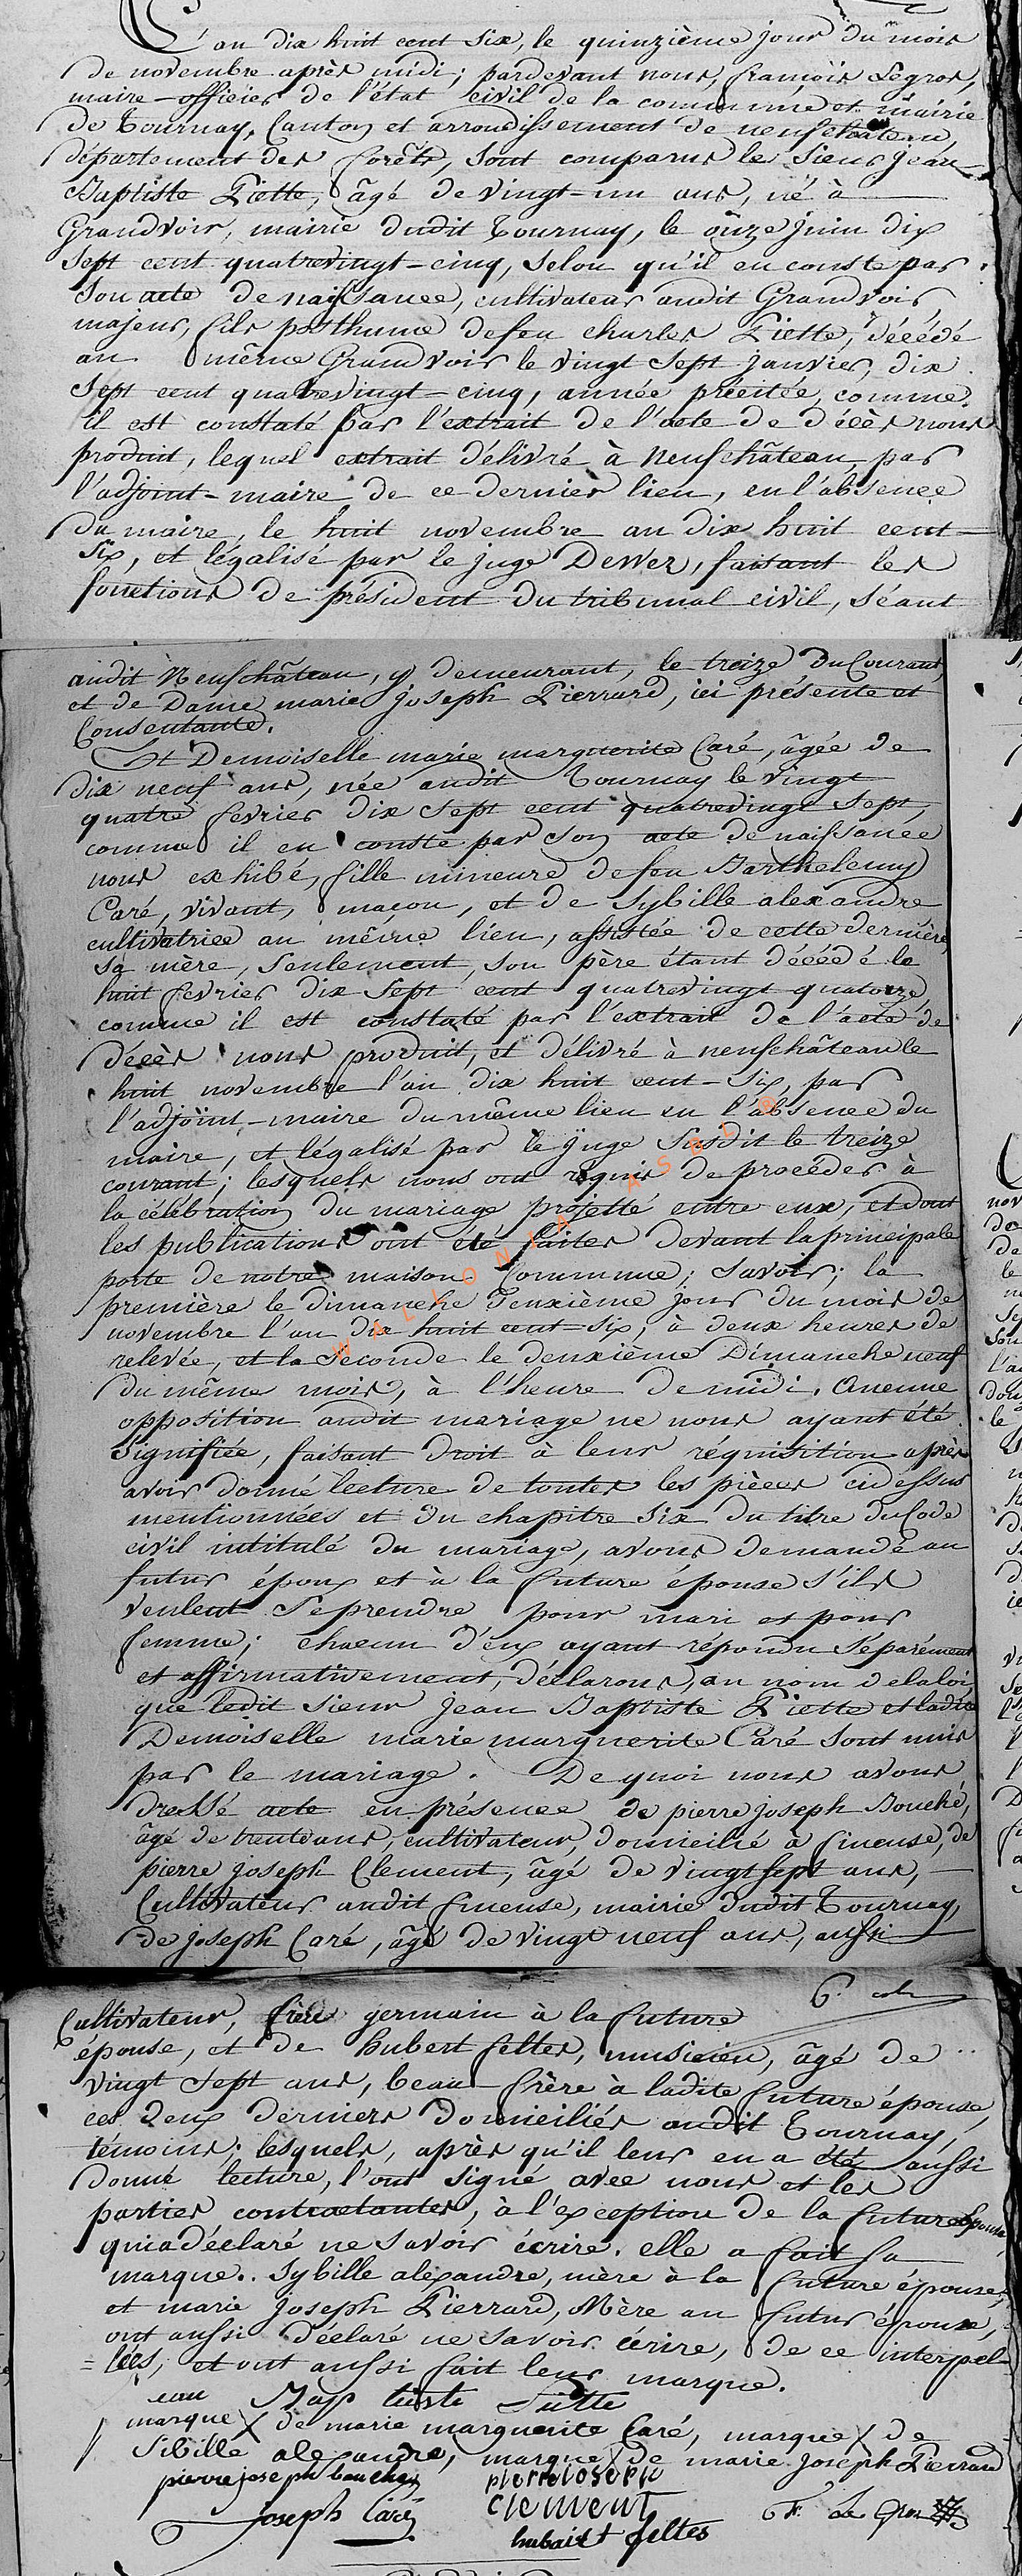 L'an dix huit cent six, le quinzième jour du mois
de novembre après midi; pardevant nous, françois Legros,
maire-officier de l'état civil de la commune et mairie
de Tournay, Canton et arrondissement de neufchateau,
département des forêts, sont comparus le sieur jean
Baptiste Piette, âgé de vingt-un ans, né à
Grandvoir, mairie dudit Tournay, le onze juin dix
sept cent quatrevingt-cinq, selon qu'il en conste par
son acte de naissance, cultivateur audit Grandvoir
majeur, fils posthume defeu charles Piette, décédé
au même Grandvoir le vingt sept janvier, dix
sept cent quatrevingt-cinq, année précitée, comme
il est constaté par l'extrait de l'acte de décès nous
produit, lequel extrait délivré à Neufchâteau par
l'adjoint-maire de ce dernier lieu, en l'absence
du maire, le huit novembre an dix huit cent
six, et légalisé par le juge Dewez, faisant les
fonctions de président du tribunal civil, séant
audit Neufchâteau, y demeurant, le treize du Courant,
et de Dame marie joseph Pierrard, ici présente et
Consentante.
Et Demoiselle marie marguerite Caré, âgée de
dix neuf ans, née audit Tournay le vingt
quatre fevrier dix sept cent quatrevingt sept,
comme il en conste par son acte de naissance
nous exhibé, fille mineure defeu Barthelemy
Caré, vivant, maçon, et de Sybille alexandre
cultivatrice au même lieu, assistée de cette dernière,
sa mère, seulement, son père étant décédé le
huit fevrier dix sept cent quatrevingt quatorze,
comme il est constaté par l'extrait de l'acte de
décès nous produit, et délivré à neufchâteau le
huit novembre l'an dix huit cent-six, par
l'adjoint-maire du même lieu en l'absence du
maire, et légalisé par le juge susdit le treize
courant; lesquels nous ont requis de procéder à
la célébration du mariage projetté entre eux, et dont
les publications ont été faites devant la principale
porte de notre maison Commune; savoir; la
première le dimanche deuxième jour du mois de
novembre l'an dix huit cent-six, à deux heures de
relevée, et la seconde le deuxième Dimanche neuf
du même mois, à l'heure de midi. Aucune
opposition audit mariage ne nous ayant été
signifiée, faisant droit à leur réquisition après
avoir donné lecture de toutes les pièces cidessus
mentionnées et du chapitre six du titre du Code
civil intitulé du mariage, avons demandé au
futur époux et à la future épouse s'ils
veulent se prendre pour mari et pour
femme; chacun d'eux ayant répondu séparément
et affirmativement, déclarons, au nom delaloi,
que ledit sieur Jean Baptiste Piette et ladite
Demoiselle marie marguerite Caré sont unis
par le mariage. De quoi nous avons
dressé acte en présence de pierre joseph Bouché,
âgé de trente ans, cultivateur, domicilié à fineuse, de
pierre joseph Clement, âgé de vingt sept ans,
Cultivateur audit fineuse, mairie dudit Tournay,
de joseph Caré, âgé de vingt neuf ans, aussi
WALLONIA ASBL ®
Cultivateur, frère germain à la future
épouse, et de hubert feltes, musicien, âgé de
vingt sept ans, beau-frère à ladite future épouse,
ces deux derniers domiciliés audit Tournay,
témoins; lesquels, après qu'il leur en a été aussi
donné lecture, l'ont signé avec nous et les
parties contractantes, à l'exception de la future Epouse
qui a déclaré ne savoir écrire. elle a fait sa
marque.. Sybille alexandre, mère à la future épouse,
et marie joseph Pierrard, Mère au futur époux,
ont aussi déclaré ne savoir écrire, de ce interpel-
=lées, et ont aussi fait leur marque.
eau Bap tiste Piette
marque X de marie marguerite Caré, marque X de
Sibille alexandre, marque X de marie joseph Pierrard
pierre joseph bouchez pierre joseph
joseph Caré clement Le Gros
hubairt feltes